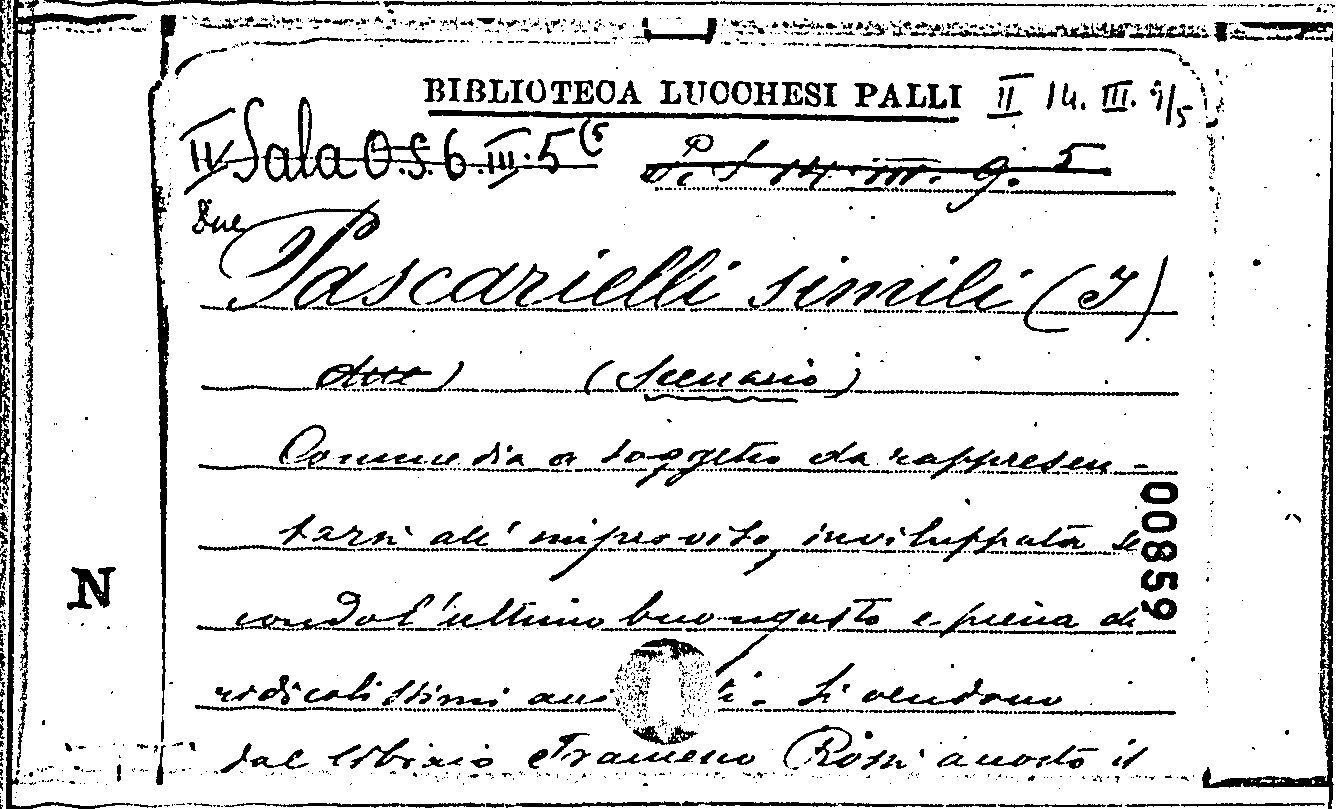 BIBLIOTECA LUCCHESI PALLI II 14. III. 9/5
IV Sala O.S. 6. III. 5 (5 P. S 14. III. 9. 5
Due
Pascarielli simili (I)
due) (Scenario)
Commedia a soggetto da rappresen-
tarsi all'improvviso, inviluppata se
condo l'ultimo buon gusto e piena di
ridicolissimi
. Si vendono
dal libraio Francesco Rossi accosto il
00859
N